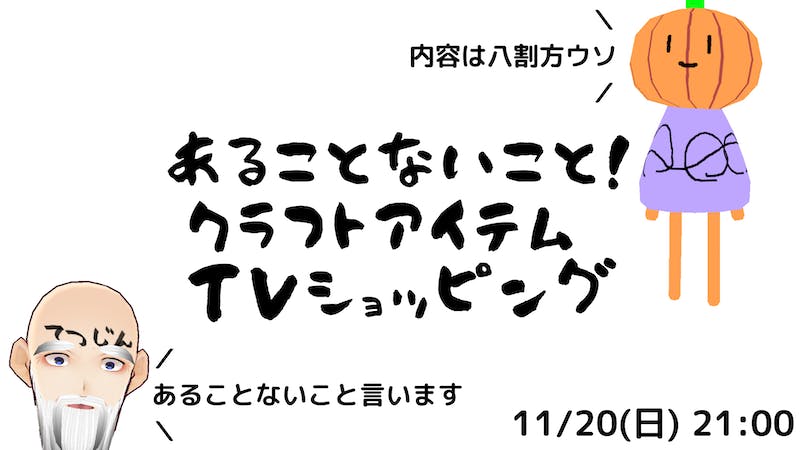 内容は八割方ウソ
あることないこと!
クラフトアイテム
TVショッピング
てつじん
あることないこと言います
11/20(日) 21:00